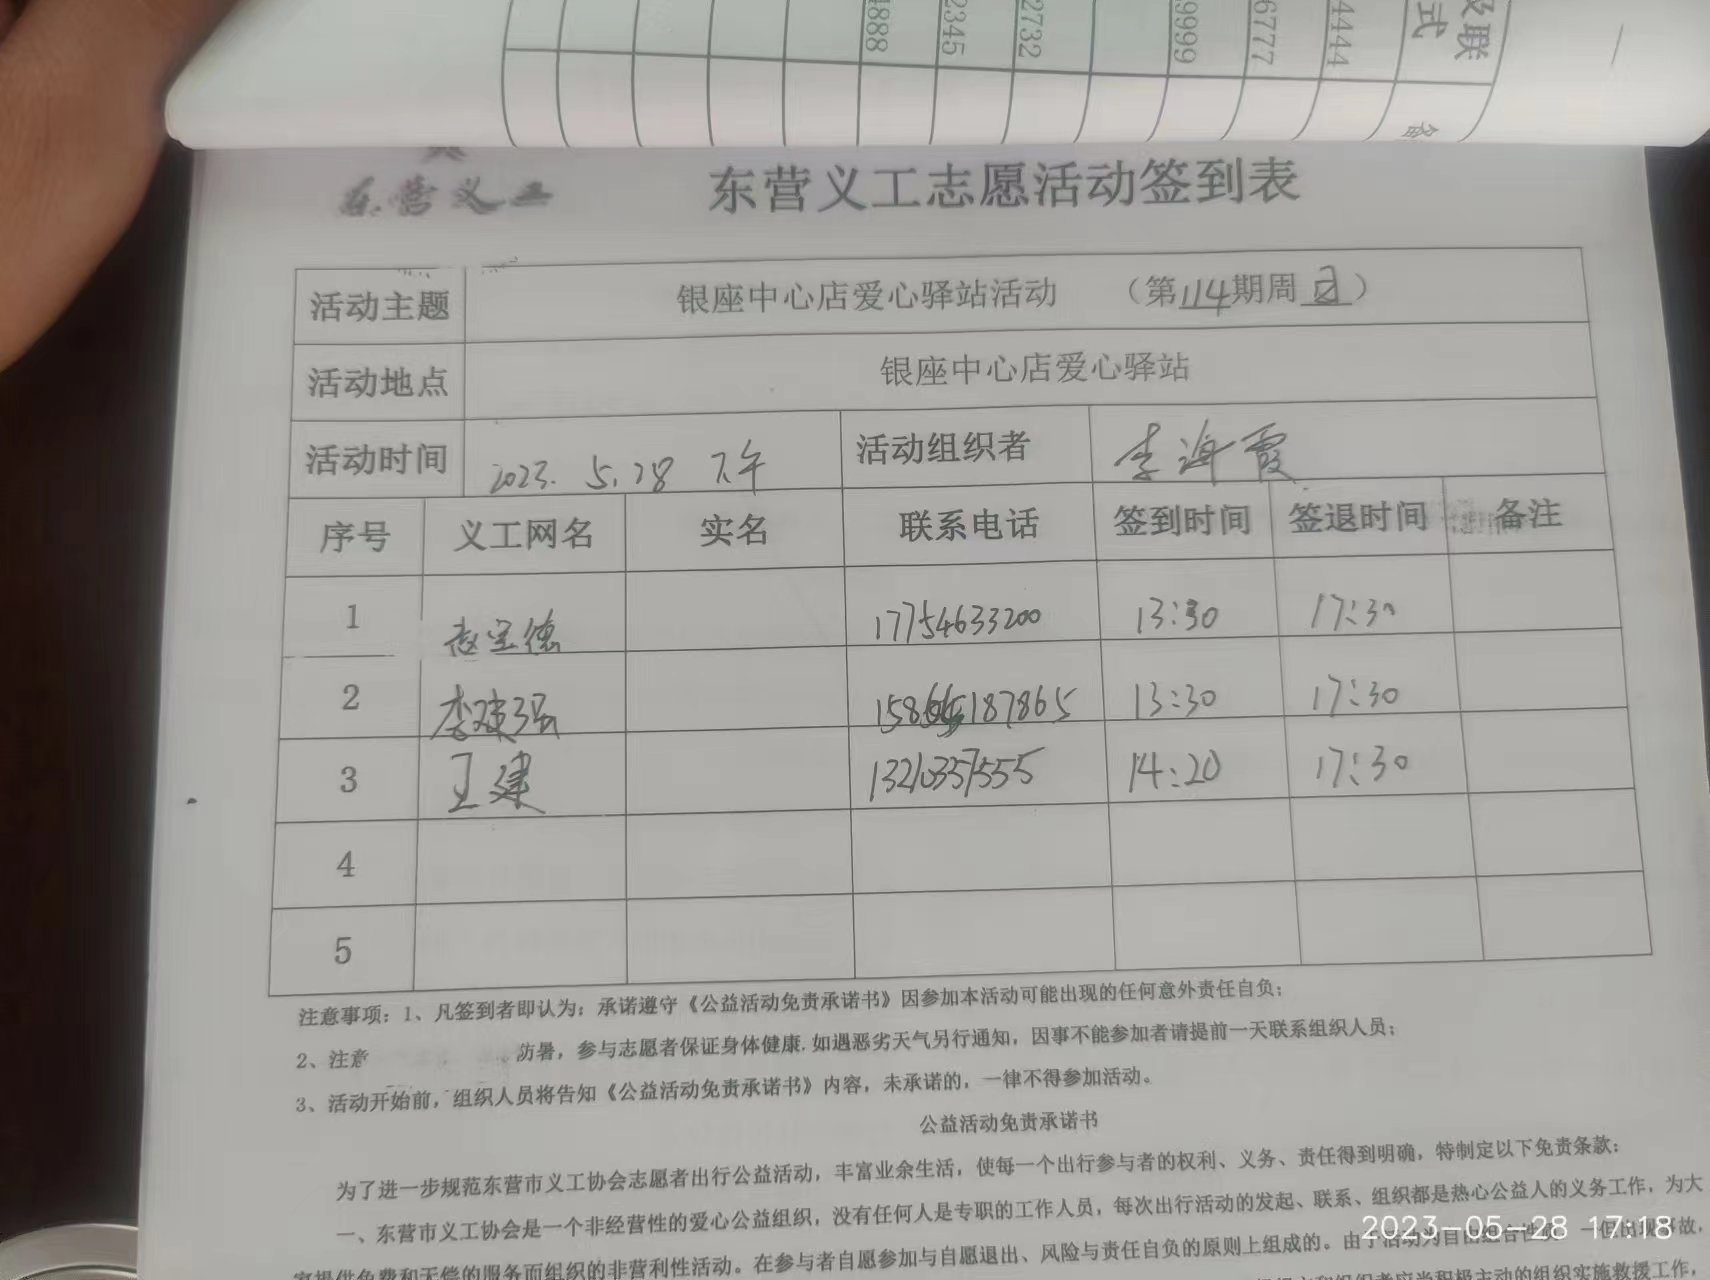 4444
6777
9999
2732
2345
4888
式
联
东营义工
东营义工志愿活动签到表
活动主题 银座中心店爱心驿站活动 （第114期周日）
活动地点 银座中心店爱心驿站
活动时间 2023.5.28 下午 活动组织者 李海霞
序号 义工网名 实名 联系电话 签到时间 签退时间 备注
1 赵宝德 17754633200 13:30 17:30
2 李建强 187865 13:30 17:30
3 王建 13210357555 14:20 17:30
4
5
注意事项：1、凡签到者即认为：承诺遵守《公益活动免责承诺书》因参加本活动可能出现的任何意外责任自负；
2、注意 防暑，参与志愿者保证身体健康.如遇恶劣天气另行通知，因事不能参加者请提前一天联系组织人员；
3、活动开始前，组织人员将告知《公益活动免责承诺书》内容，未承诺的，一律不得参加活动。
公益活动免责承诺书
为了进一步规范东营市义工协会志愿者出行公益活动，丰富业余生活，使每一个出行参与者的权利、义务、责任得到明确，特制定以下免责条款：
一、东营市义工协会是一个非经营性的爱心公益组织，没有任何人是专职的工作人员，每次出行活动的发起、联系、组织都是热心公益人的义务工作，为大
家提供免费和无偿的服务而组织的非营利性活动。在参与者自愿参加与自愿退出、风险与责任自负的原则上组成的。由于活动为自由组合性
组织实施救援工作，
2023-05-28 17:18